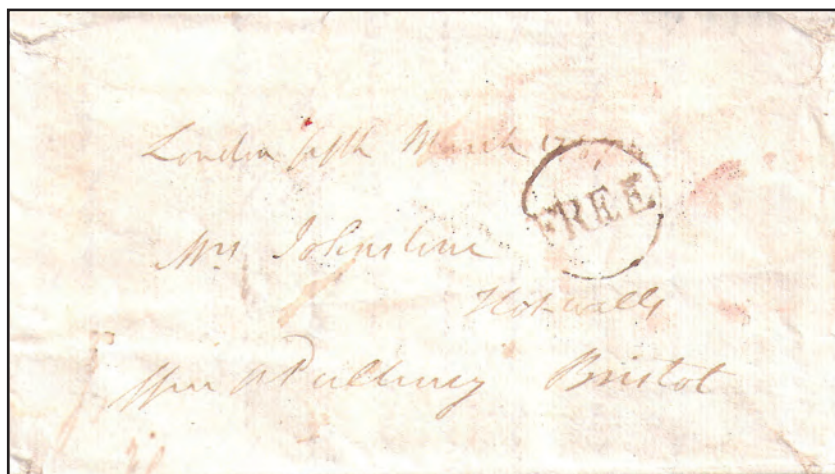 London fifth March
FREE
Mrs Johnstone
Hotwells
Wm Pulteney Bristol